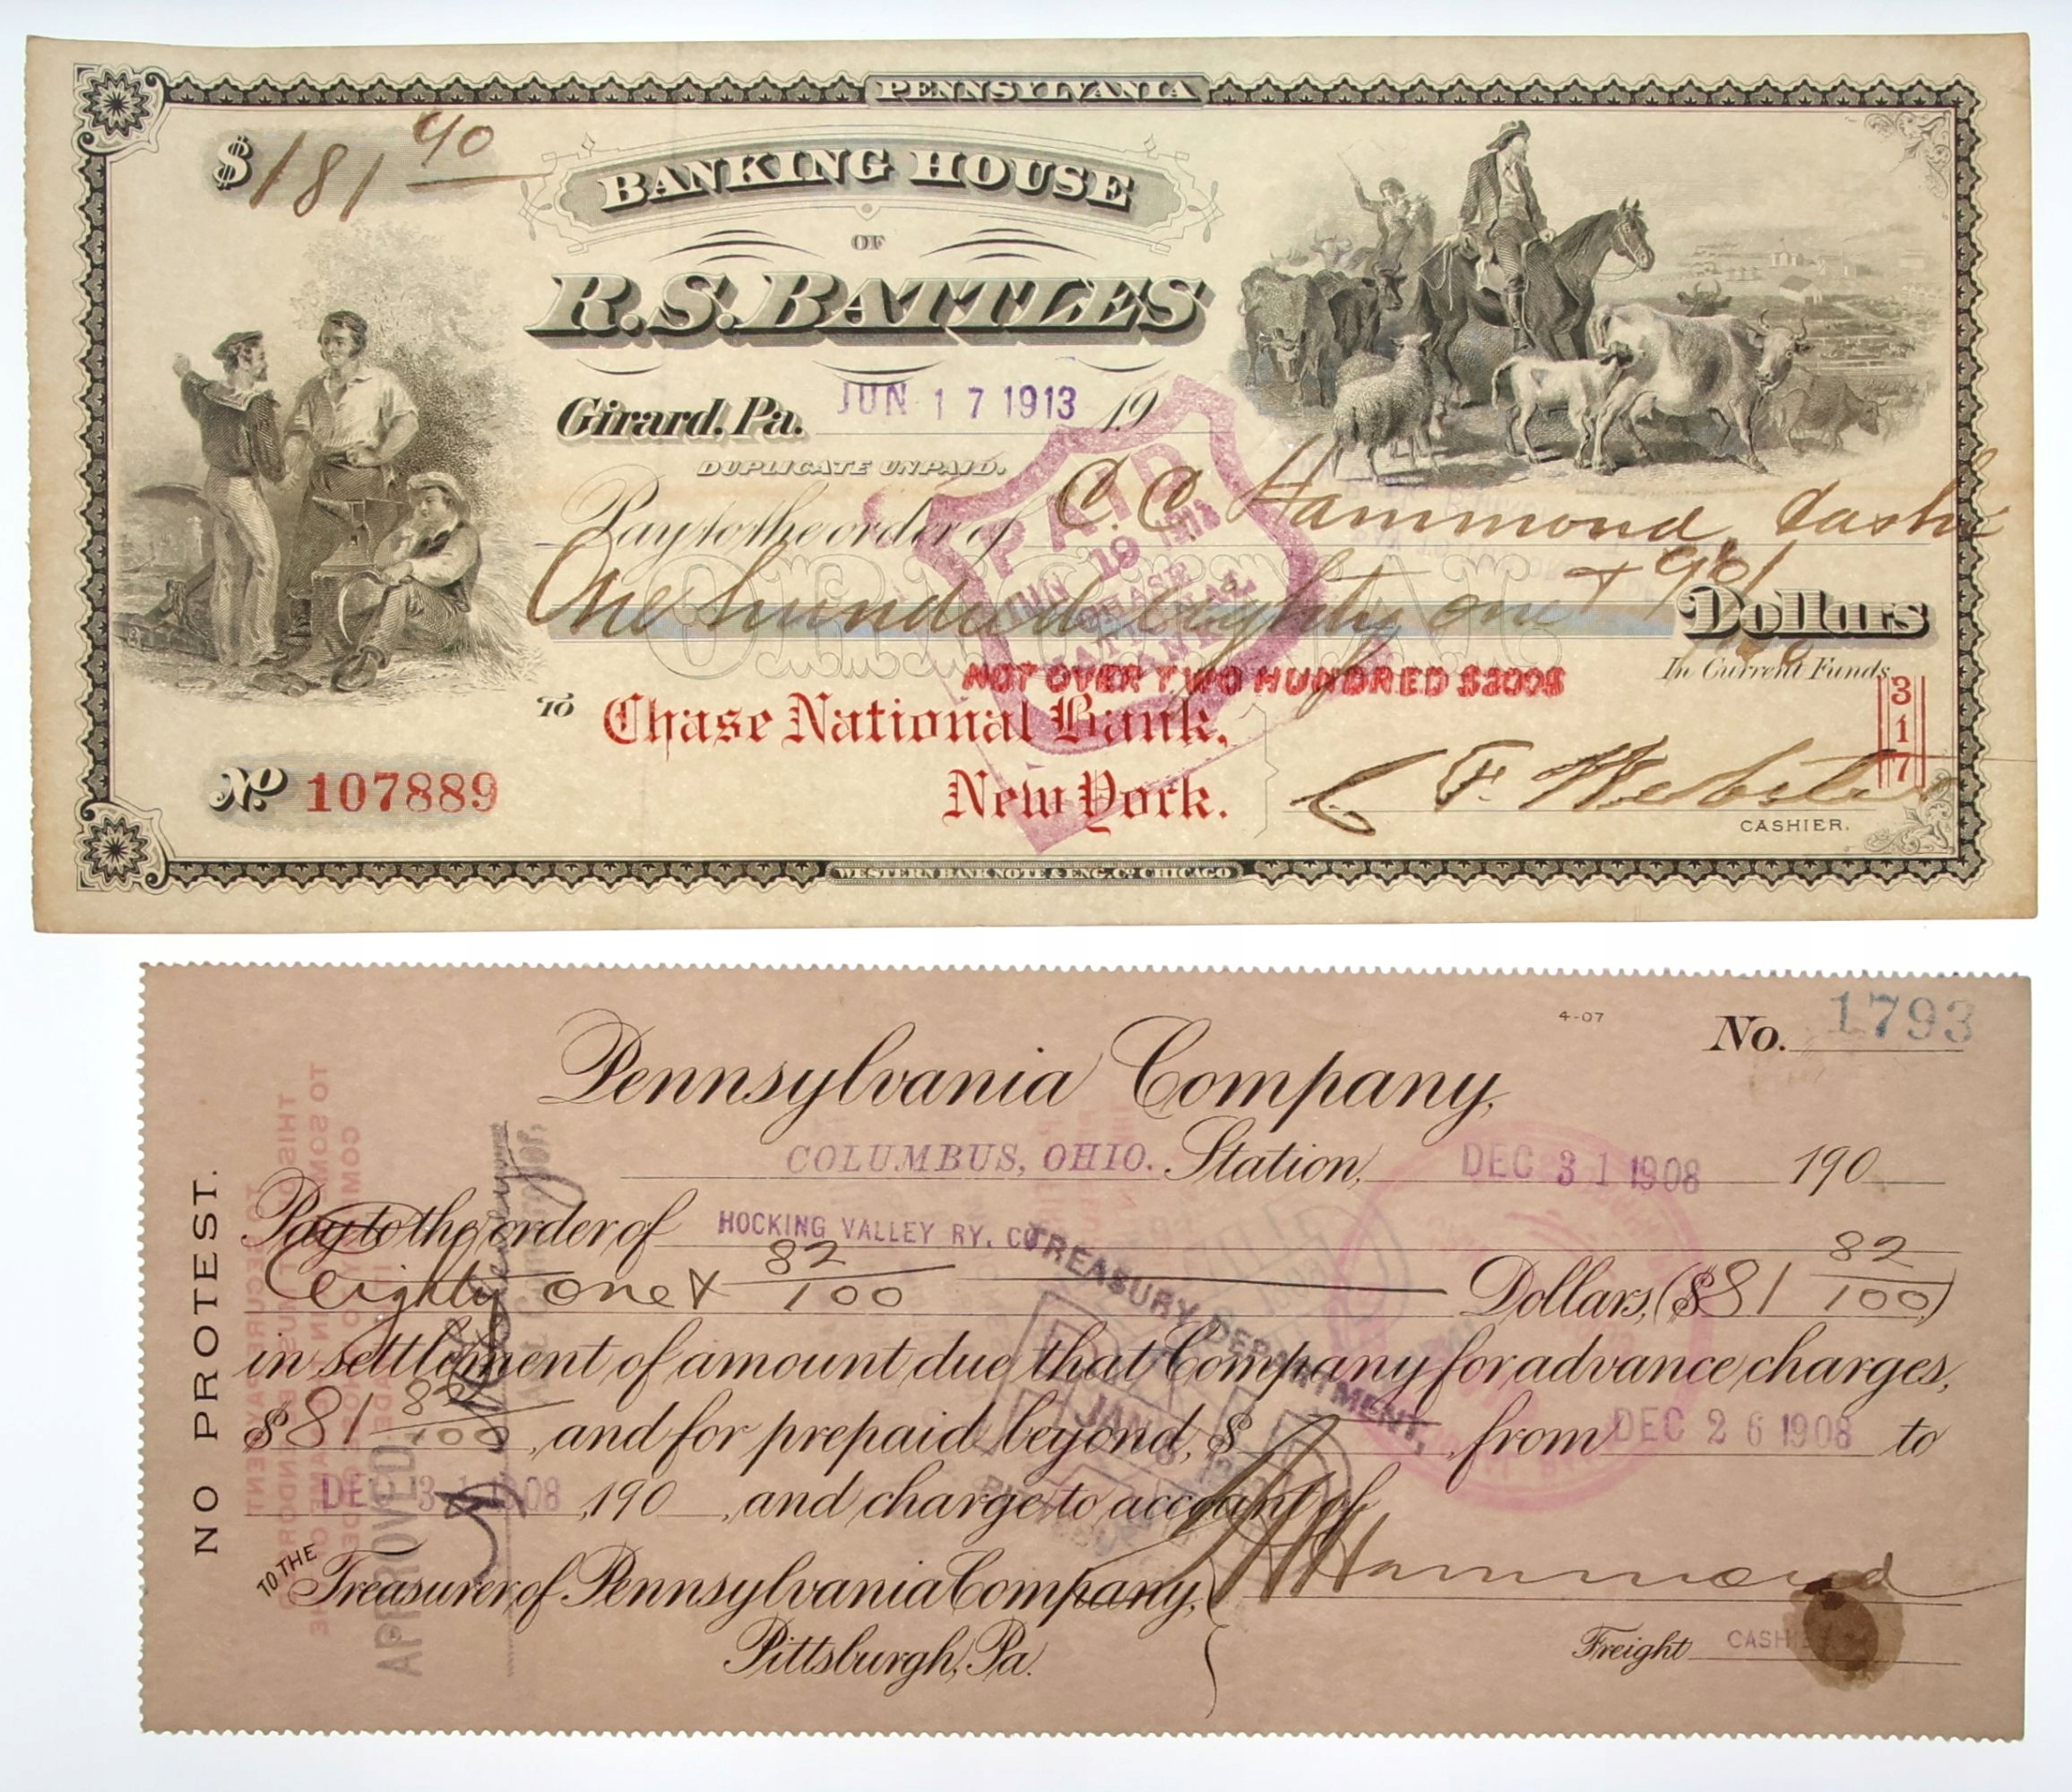 PENNSYLVANIA
$181 90
BANKING HOUSE
OF
R.S. BATTLES
Girard, Pa. JUN 17 1913 19
DUPLICATE UNPAID.
Pay to the order of C. C. Hammond, Cash
One hundred eighty one + 90/ Dollars
ORIGINAL
PAID
JUN 19 1913
CHASE
NATIONAL
BANK
NOT OVER TWO HUNDRED $200$
In Current Funds
To Chase National Bank,
New York.
317
No. 107889
C F. Webster
CASHIER.
WESTERN BANK NOTE & ENG. CO. CHICAGO
4-07
No. 1793
Pennsylvania Company,
COLUMBUS, OHIO. Station, DEC 31 1908 190
Pay to the order of HOCKING VALLEY RY. CO
eighty one & 82/100 Dollars, ($81 82/100)
in settlement of amount due that Company for advance charges,
$81 82/100, and for prepaid beyond, $ , from DEC 26 1908 to
DEC 31 1908, 190 , and charge to account of
TO THE Treasurer of Pennsylvania Company,
Pittsburgh, Pa.
Hammond
Freight CASHIER
NO PROTEST.
APPROVED,
TREASURY DEPARTMENT,
PAID
JAN 9